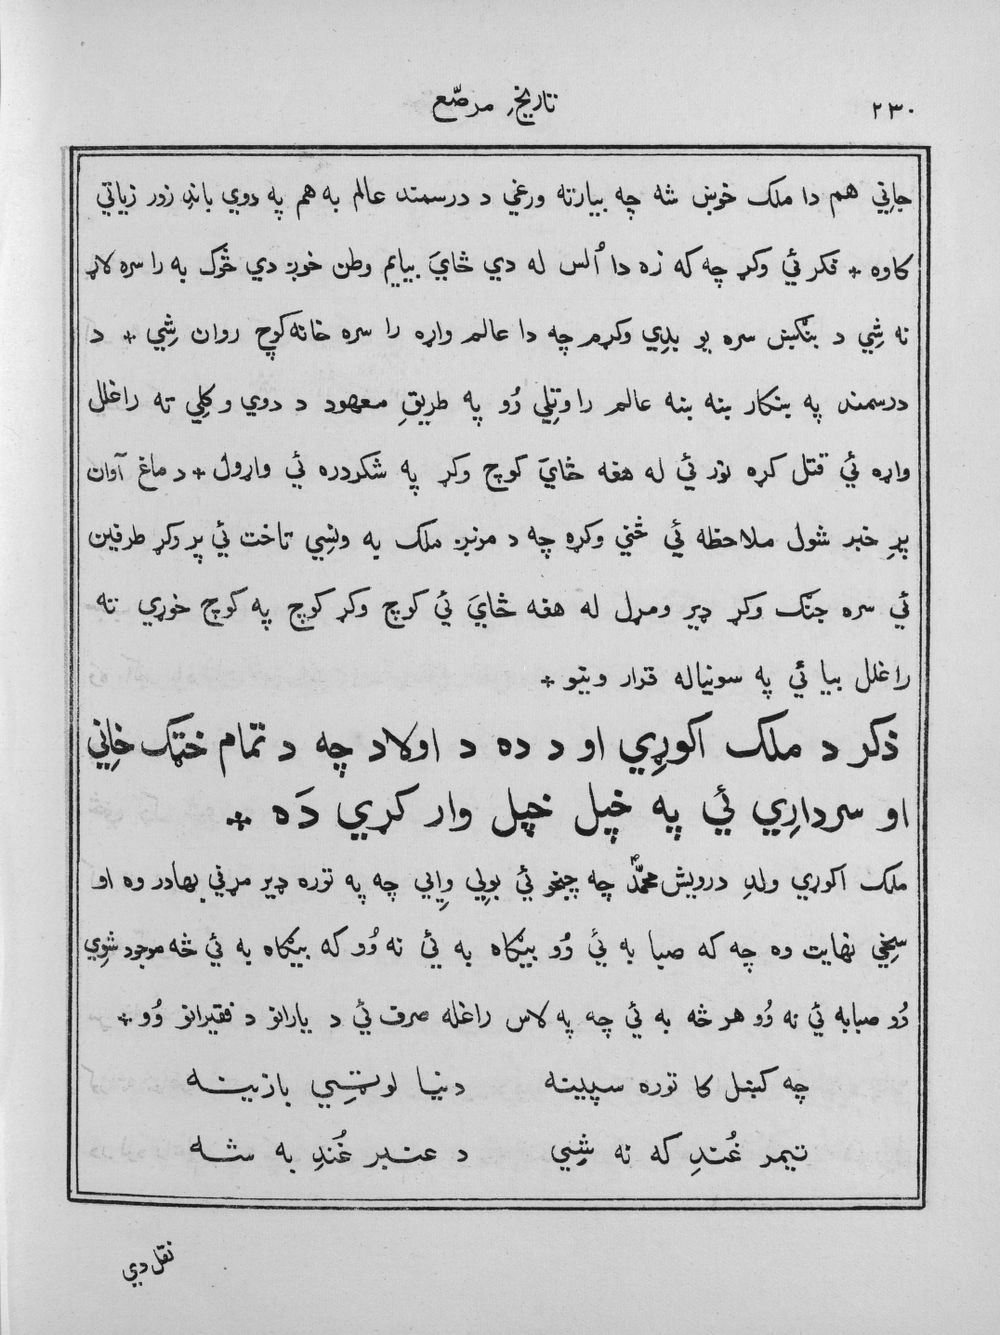 ۲۳۰
تاریخِ مرصّع
جانِي هم دا ملک خوښ شه چه بیارته ورغي د درسمند عالم به هم په دوي باندِ زور زیاتي
کاوه + فکر ئي وکړ چه که زه دا اُلس له دي ځايَ بیایم وطن خوږ دي څوک به را سره لاړ
نه شِي د بنګښ سره یو بدِي وکړم چه دا عالم واړه را سره خانه کوچ روان شِي + د
درسمند په ښکار بنه بنه عالم را وتِلي وُو په طریقِ معهود د دوي و کلِي ته راغلل
واړه ئي قتل کړه نور ئي له هغه ځايَ کوچ وکړ په شکردره ئي واړول + د ماغ آوان
پرِ خبر شول ملاحظه ئي ځنِي وکړه چه د مونږ ملک به ونسِي تاخت ئي پر وکړ طرفین
ئي سره جنګ وکړ ډیر ومړل له هغه ځايَ ئي کوچ وکړ کوچ په کوچ خوړي ته
راغلل بیا ئي په سونیاله قرار ونیو +
ذکر د ملک اکوړِي او د ده د اولاد چه د تمام خټک خانِي
او سردارِي ئي په خپل خپل وار کړي دَه +
ملک اکوړي ولدِ درویش محمّد چه چنجو ئي بولِي وايِي چه په توره ډیر مړنی بهادر وه او
سخِي نهایت وه چه که صبا به ئي وُو بیګاه به ئي نه وُو که بیګاه به ئي څه موجود شوِي
وُو صبا به ئي نه وُو هر څه به ئي چه په لاس راغله صرف ئي د یارانو د فقیرانو وُو +
چه کښل کا توره سپینه دنیا لوټِي بازینه
نیمر غُندِ که نه شِي د عنبر غُندِ به شه
نقل دي